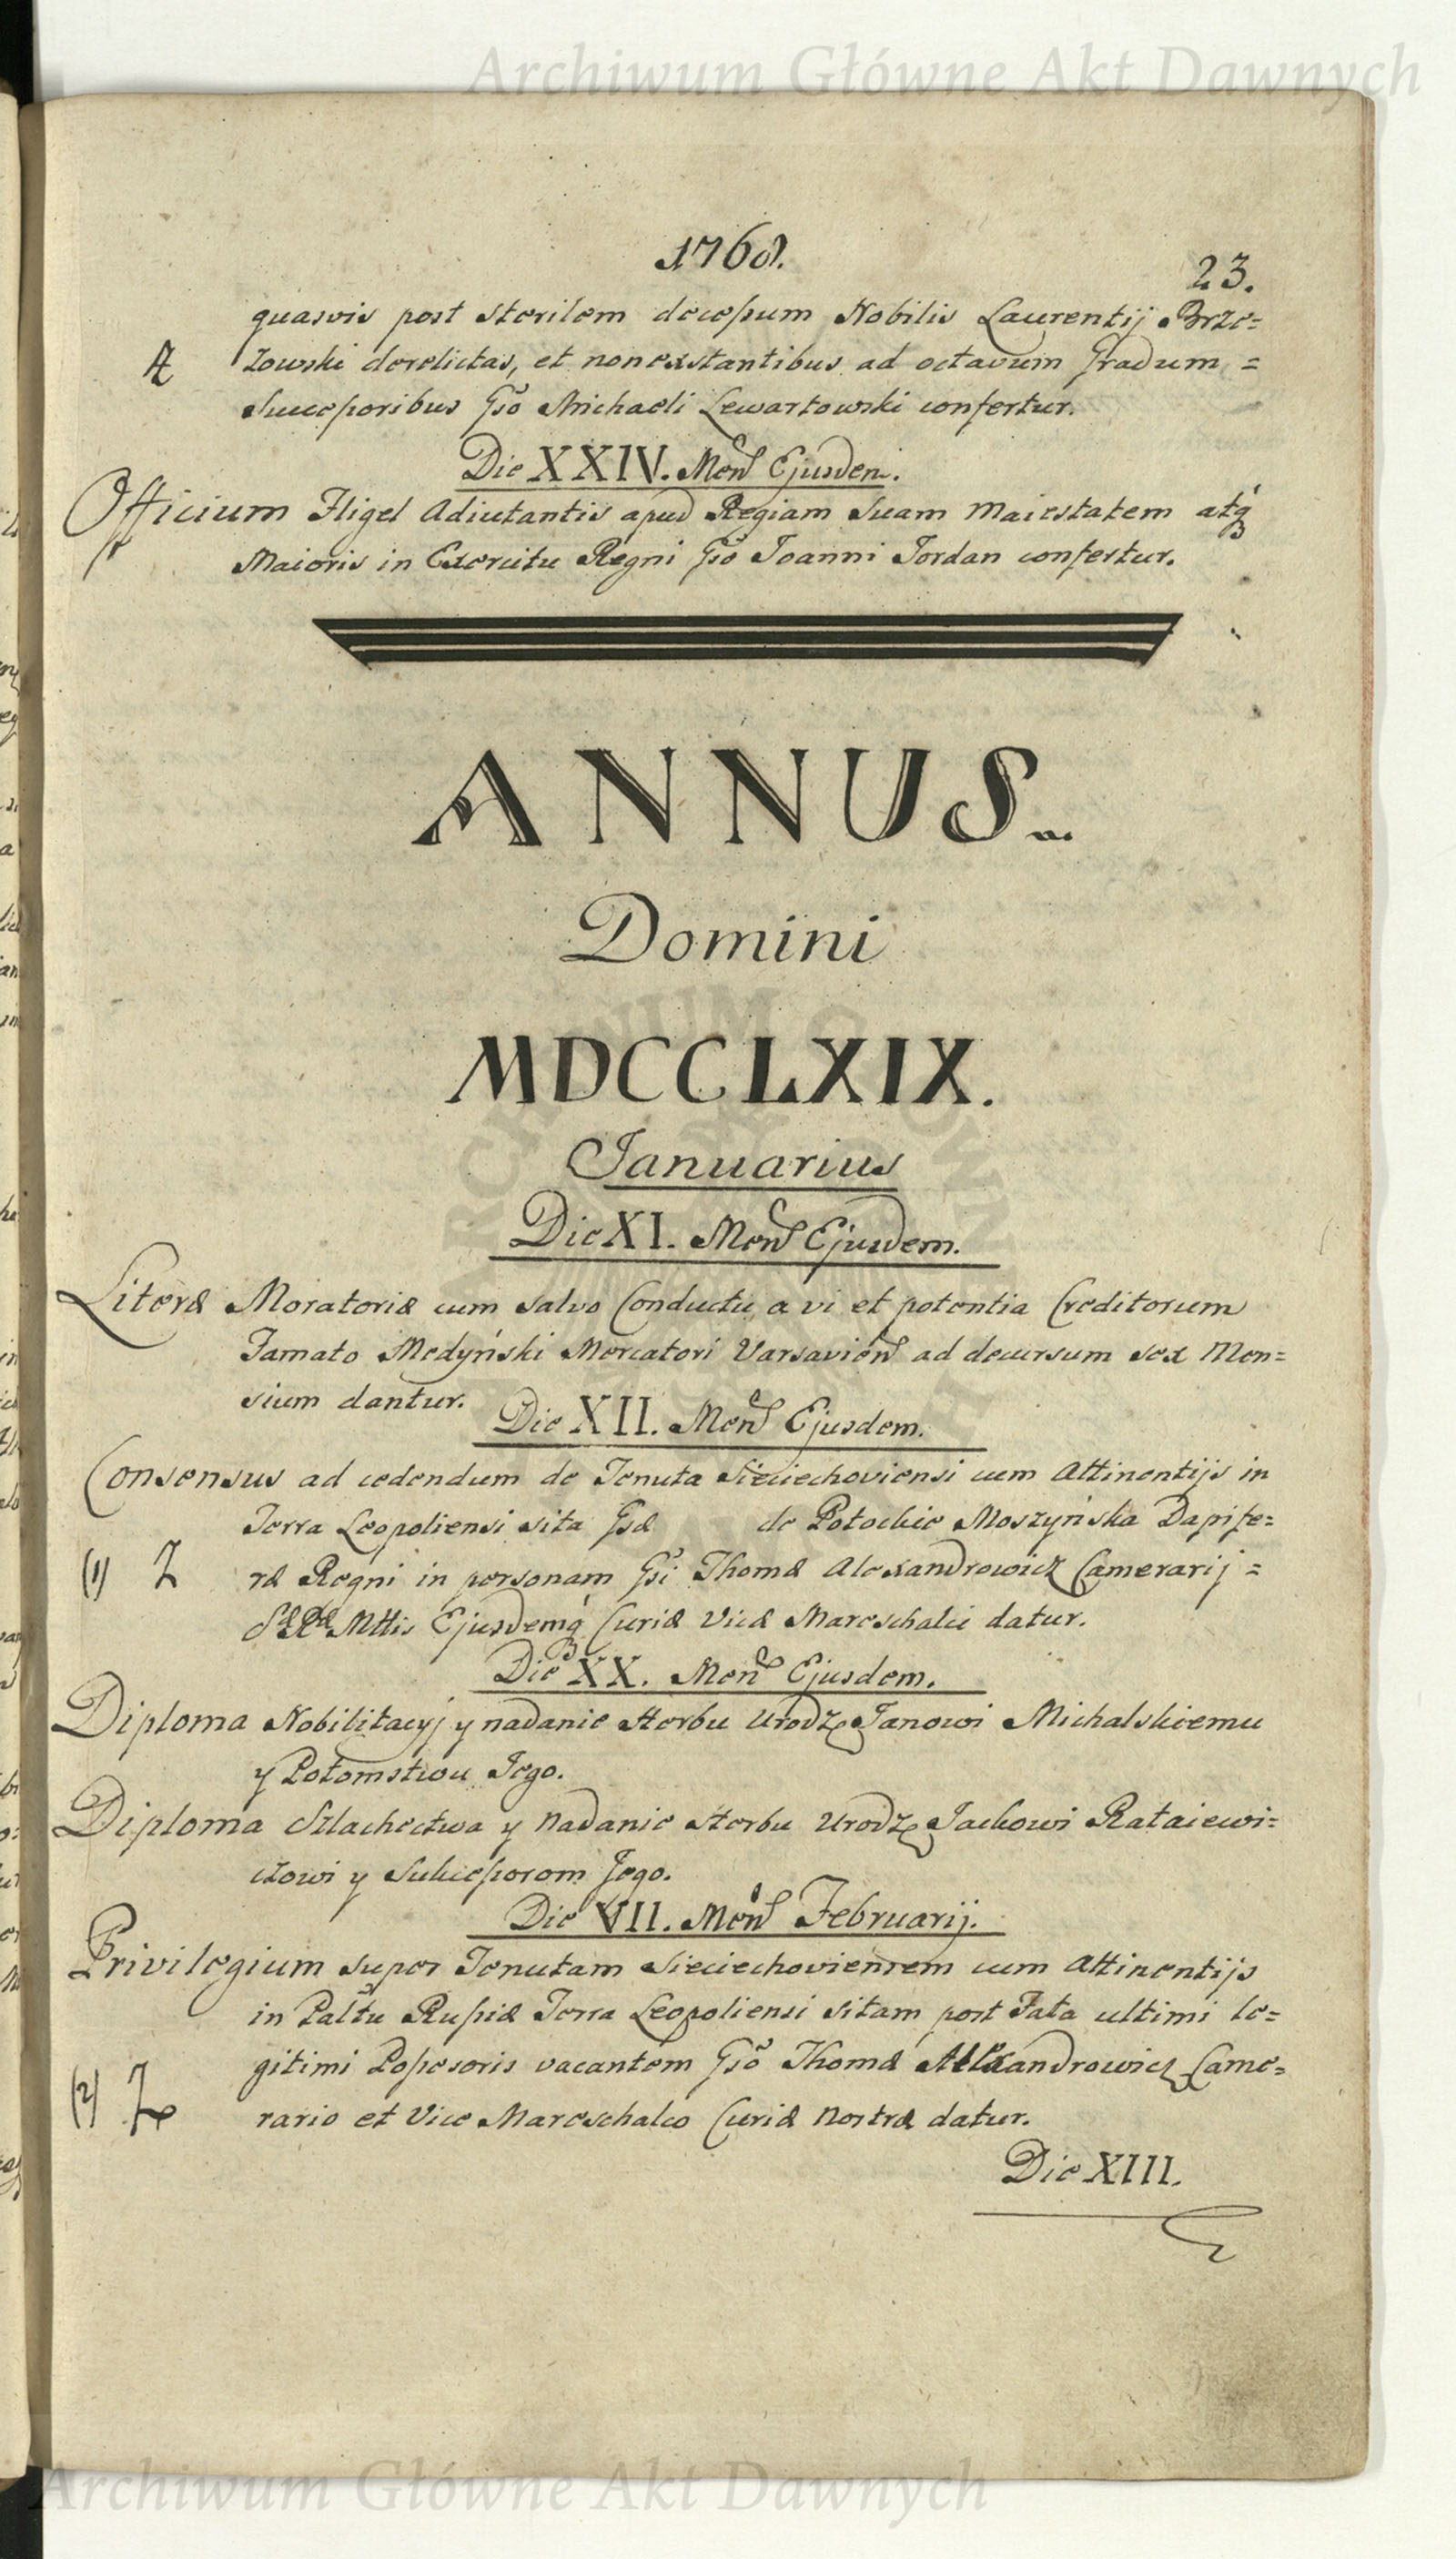 Archiwum Główne Akt Dawnych
1768.
23.
quasvis post sterilem decessum Nobilis Laurentij Brze=
zowski derelictas, et non exstantibus ad octavum gradum =
Successoribus Gso Michaeli Lewartowski confertur.
Die XXIV. Mens Ejusdem.
Officium Fligel Adiutantis apud Regiam Suam Maiestatem atq
Maioris in Exercitu Regni Gso Joanni Jordan confertur.
ANNUS
Domini
MDCCLXIX.
Januarius
Die XI. Mens Ejusdem.
Literæ Moratoriæ cum salvo Conductu a vi et potentia Creditorum
Famato Medyński Mercatori Varsavien ad decursum sex Men=
sium dantur.
Die XII. Mens Ejusdem.
Consensus ad cedendum de Tenuta Sieciechoviensi cum Attinentijs in
Terra Leopoliensi sita Gsæ de Potockie Moszyńska Dapife=
(1) ræ Regni in personam Gsi Thomæ Alexandrowicz Camerarij =
SæRæ Mttis Ejusdemq Curiæ Vice Mareschalci datur.
Die XX. Mens Ejusdem.
Diploma Nobilitacyj y nadanie Herbu Urodz Janowi Michalskiemu
y Potomstwu Jego.
Diploma Szlachectwa y Nadanie Herbu Urodz Jackowi Rataiewi=
czowi y Sukcessorom Jego.
Die VII. Mens Februarij.
Privilegium super Tenutam Sieciechoviensem cum Attinentijs
in Paltu Russiæ Terra Leopoliensi sitam post Fata ultimi le=
gitimi Possesoris vacantem Gso Thomæ Alexandrowicz Came=
(2) rario et Vice Mareschalco Curiæ Nostræ datur.
Die XIII.
Archiwum Główne Akt Dawnych